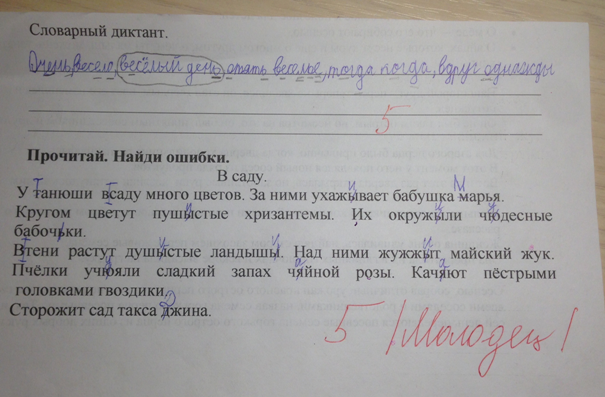 Словарный диктант.
Очень, весело, весёлый день, опять веселье, тогда когда, вдруг однажды
5
Прочитай. Найди ошибки.
В саду.
У танюши всаду много цветов. За ними ухажывает бабушка марья.
Кругом цветут пушыстые хризантемы. Их окружыли чюдесные
бабочьки.
Втени растут душыстые ландышы. Над ними жужжыт майский жук.
Пчёлки учюяли сладкий запах чяйной розы. Качяют пёстрыми
головками гвоздики.
Сторожит сад такса джина.
5 / Молодец /